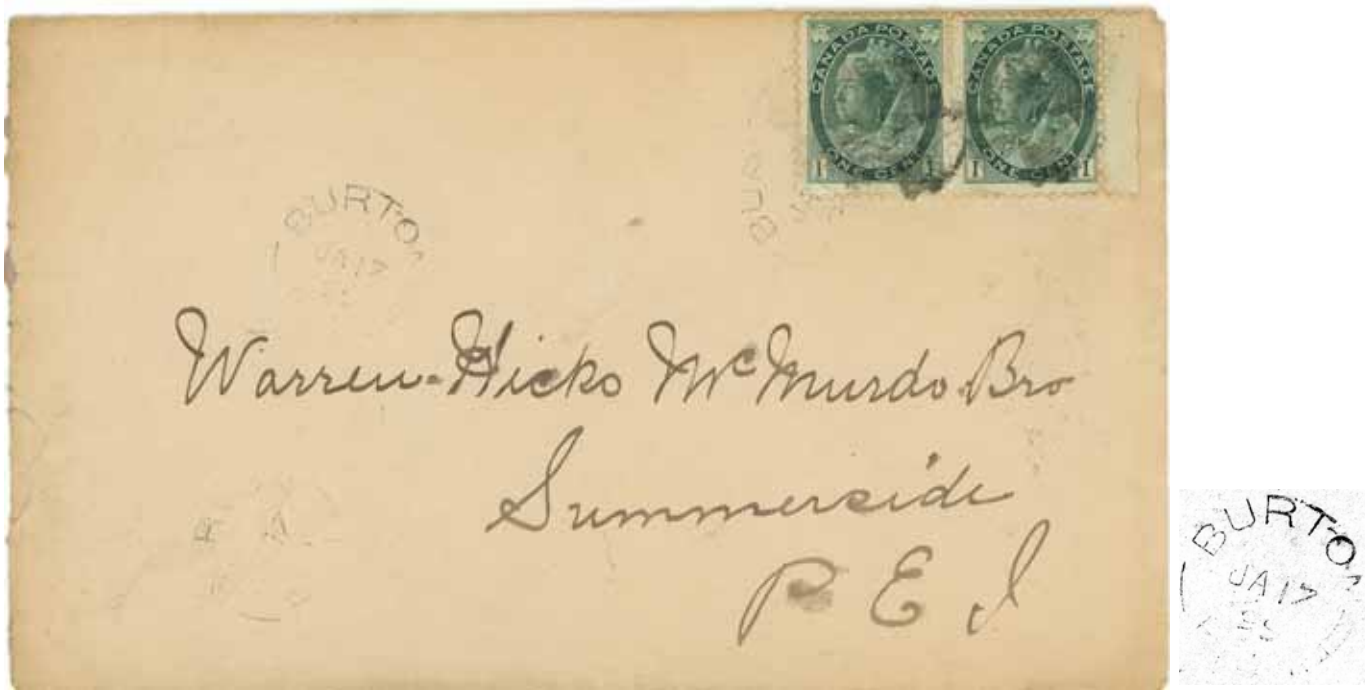 CANADA POSTAGE
ONE CENT
1 1
CANADA POSTAGE
ONE CENT
1 1
BURTO
JA 17
Warren-Hicks McMurdo Bro
Summerside
P E I
BURTO
JA 17